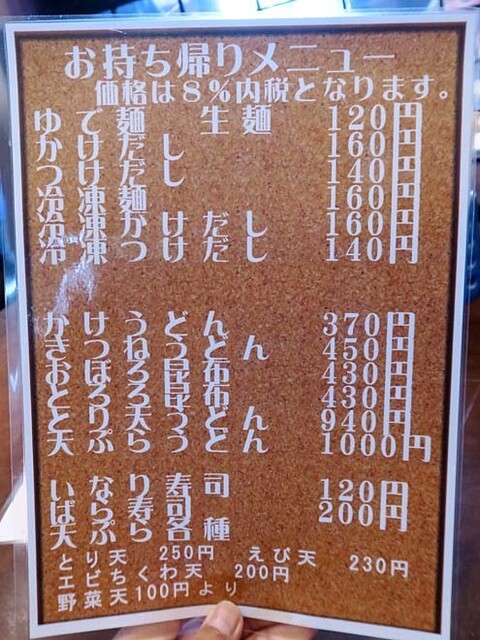 お持ち帰りメニュー
価格は8%内税となります。
ゆで麺 生麺 120円
かけだし 160円
つけだし 140円
冷凍麺 160円
冷凍かけだし 160円
冷凍つけだし 140円
かけうどん 370円
きつねうどん 450円
おぼろ昆布 430円
とろろ昆布 430円
とり天うどん 940円
天ぷらうどん 1000円
いなり寿司 120円
ばら寿司 200円
天ぷら各種
とり天 250円 えび天 230円
エビちくわ天 200円
野菜天100円より